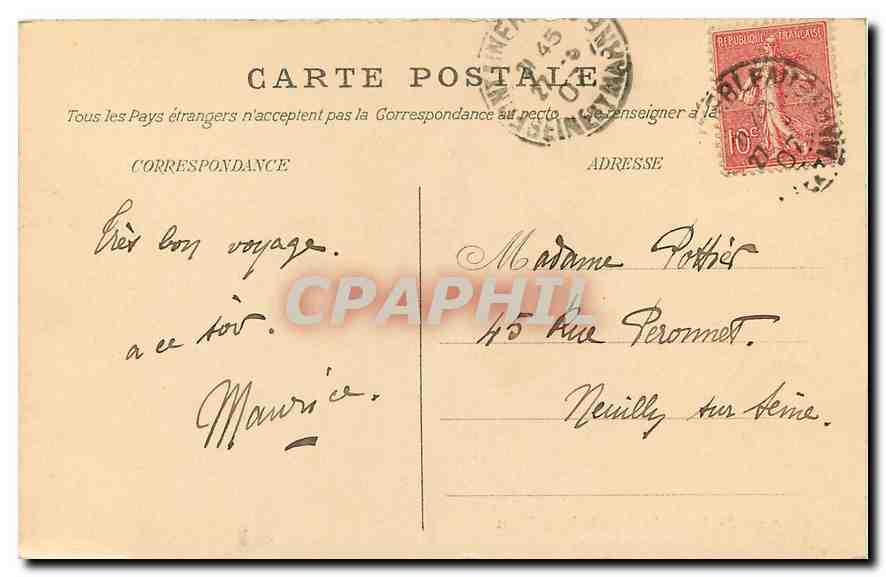 CARTE POSTALE
Tous les Pays étrangers n'acceptent pas la Correspondance au recto Se renseigner à la
CORRESPONDANCE
ADRESSE
REPUBLIQUE FRANÇAISE
10c
21 45
22
Très bon voyage.
a ce soir.
Maurice.
Madame Pottier
45 Rue Peronnet.
Neuilly sur Seine.
CPAPHIL